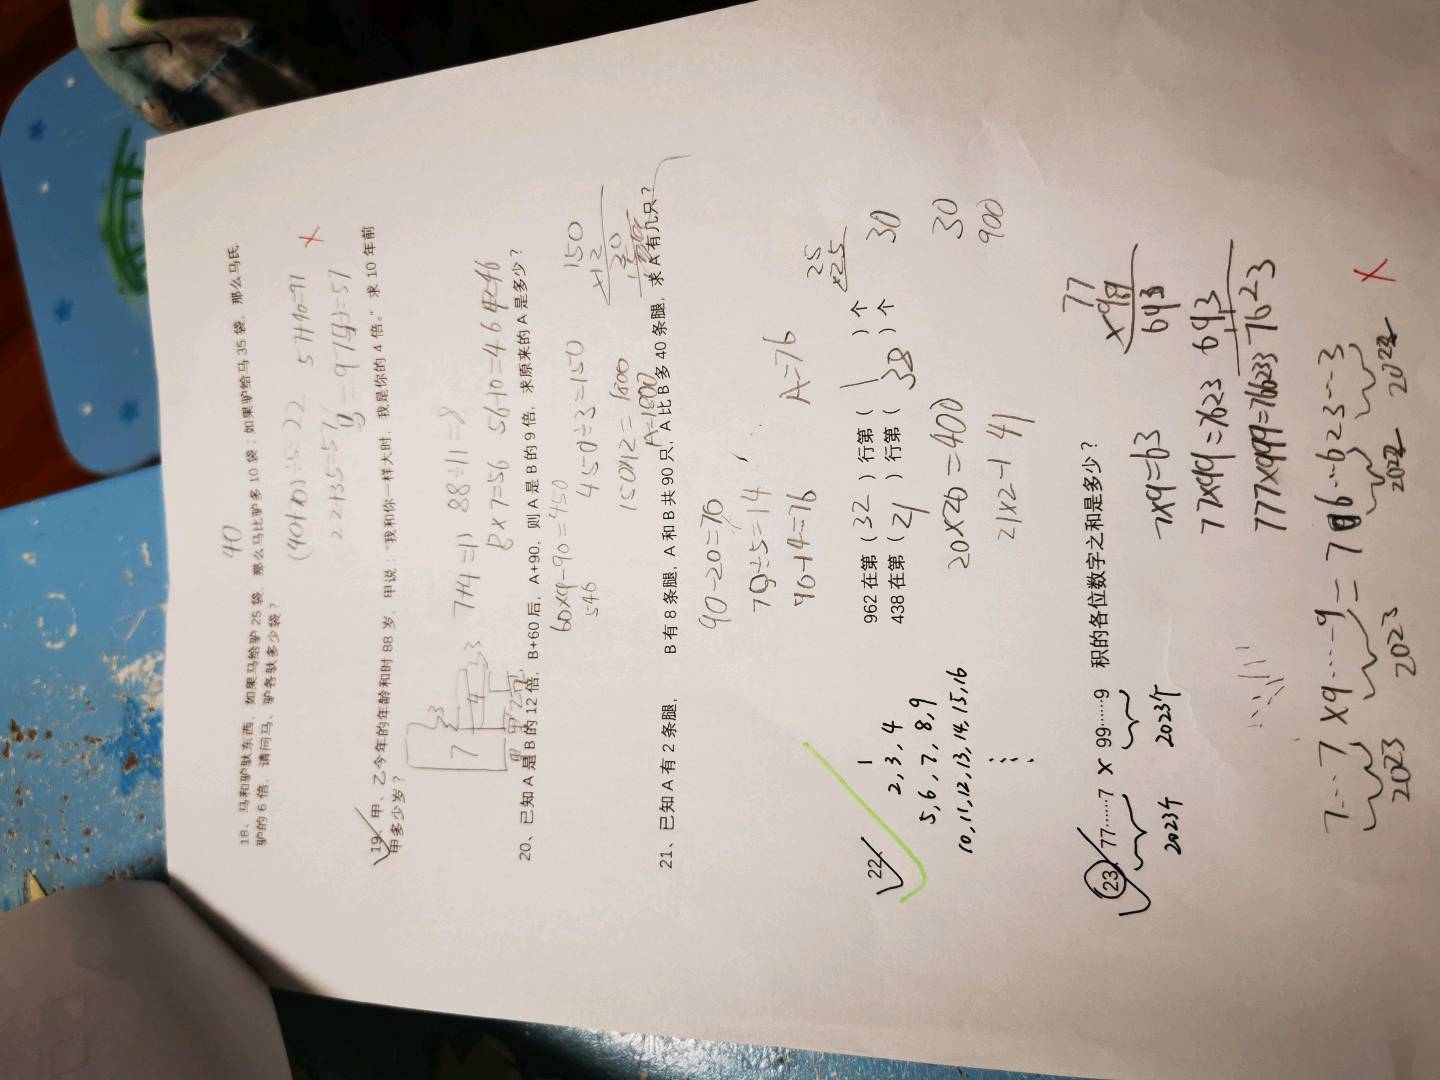 18、马和驴驮东西，如果马给驴 25 袋，那么马比驴多 10 袋；如果驴给马 35 袋，那么马民
驴的 6 倍，请问马、驴各驮多少袋？
40
22+35=57
57+40=97
19、甲、乙今年的年龄和时 88 岁，甲说：“我和你一样大时，我是你的 4 倍。”求 10 年前
甲多少岁？
7+4=11 88÷11=8
8×7=56 56-10=46
20、已知 A 是 B 的 12 倍，B+60 后，A+90，则 A 是 B 的 9 倍，求原来的 A 是多少？
60×9-90=450
450÷3=150
150×12=1800
A=1800
21、已知 A 有 2 条腿， B 有 8 条腿，A 和 B 共 90 只，A 比 B 多 40 条腿，求 A 有几只？
90-20=70
70÷5=14
90-14=76 A=76
22、 1
2, 3, 4
5, 6, 7, 8, 9
10, 11, 12, 13, 14, 15, 16
962 在第（ 32 ）行第（ 1 ）个 30
438 在第（ 21 ）行第（ 38 ）个
20×20=400
21×2-1 41
30
900
23、77……7 × 99……9 积的各位数字之和是多少？
2023个 2023个
7×9=63
77×99=7623
777×999=776223
77
×99
693
693
7623
7…7×9……9=7…76…623…3
2023 2023 2022 2022